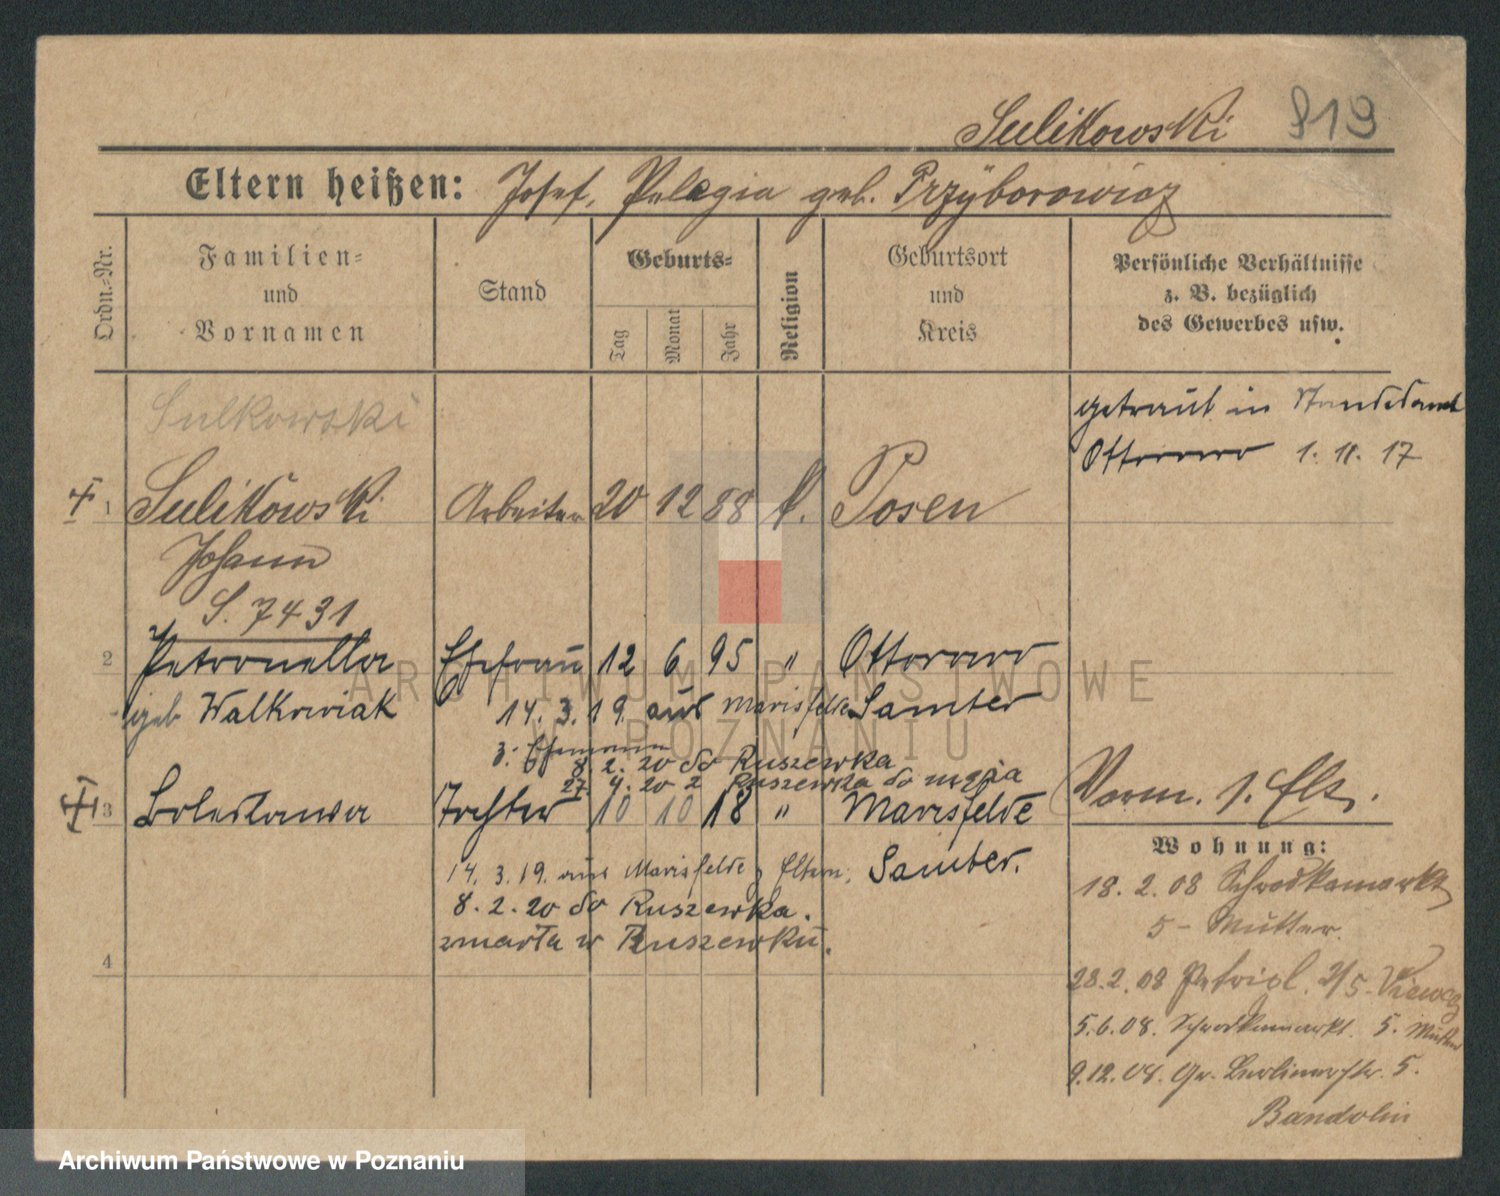 Sulikowski 919
Eltern heißen: Josef, Pelagia geb. Przyborowicz
Ordn.-Nr.
Familien-
und
Vornamen
Stand
Geburts-
Tag
Monat
Jahr
Religion
Geburtsort
und
Kreis
Persönliche Verhältnisse
z. B. bezüglich
des Gewerbes usw.
Sulkowski
getraut in Standesamt
Ottorowo 1. 11. 17
1 Sulikowski Arbeiter 20 12 88 k. Posen
Johann
S. 7431
2 Petronella Ehefrau 12 6 95 " Ottorowo
geb Walkowiak 14. 3. 19. aus Marisfelde Samter
z. Ehemann
8. 2. 20 do Ruszewka
27. 4. 20 z Ruszewka do męża
3 Boleslawa Tochter 10 10 18 " Marisfelde
14. 3. 19. aus Marisfelde z Eltern. Samter.
8. 2. 20 do Ruszewka.
zmarła w Ruszewku.
4
Vorm. s. Elt.
Wohnung:
18. 2. 08 Schrodkamarkt
5 - Mutter.
28. 2. 08 Petripl. 2/5
5. 6. 08. Schrodkamarkt. 5. Mutter
9. 12. 08. Gr. Berlinerstr. 5.
Bandolin
ARCHIWUM PAŃSTWOWE
W POZNANIU
Archiwum Państwowe w Poznaniu